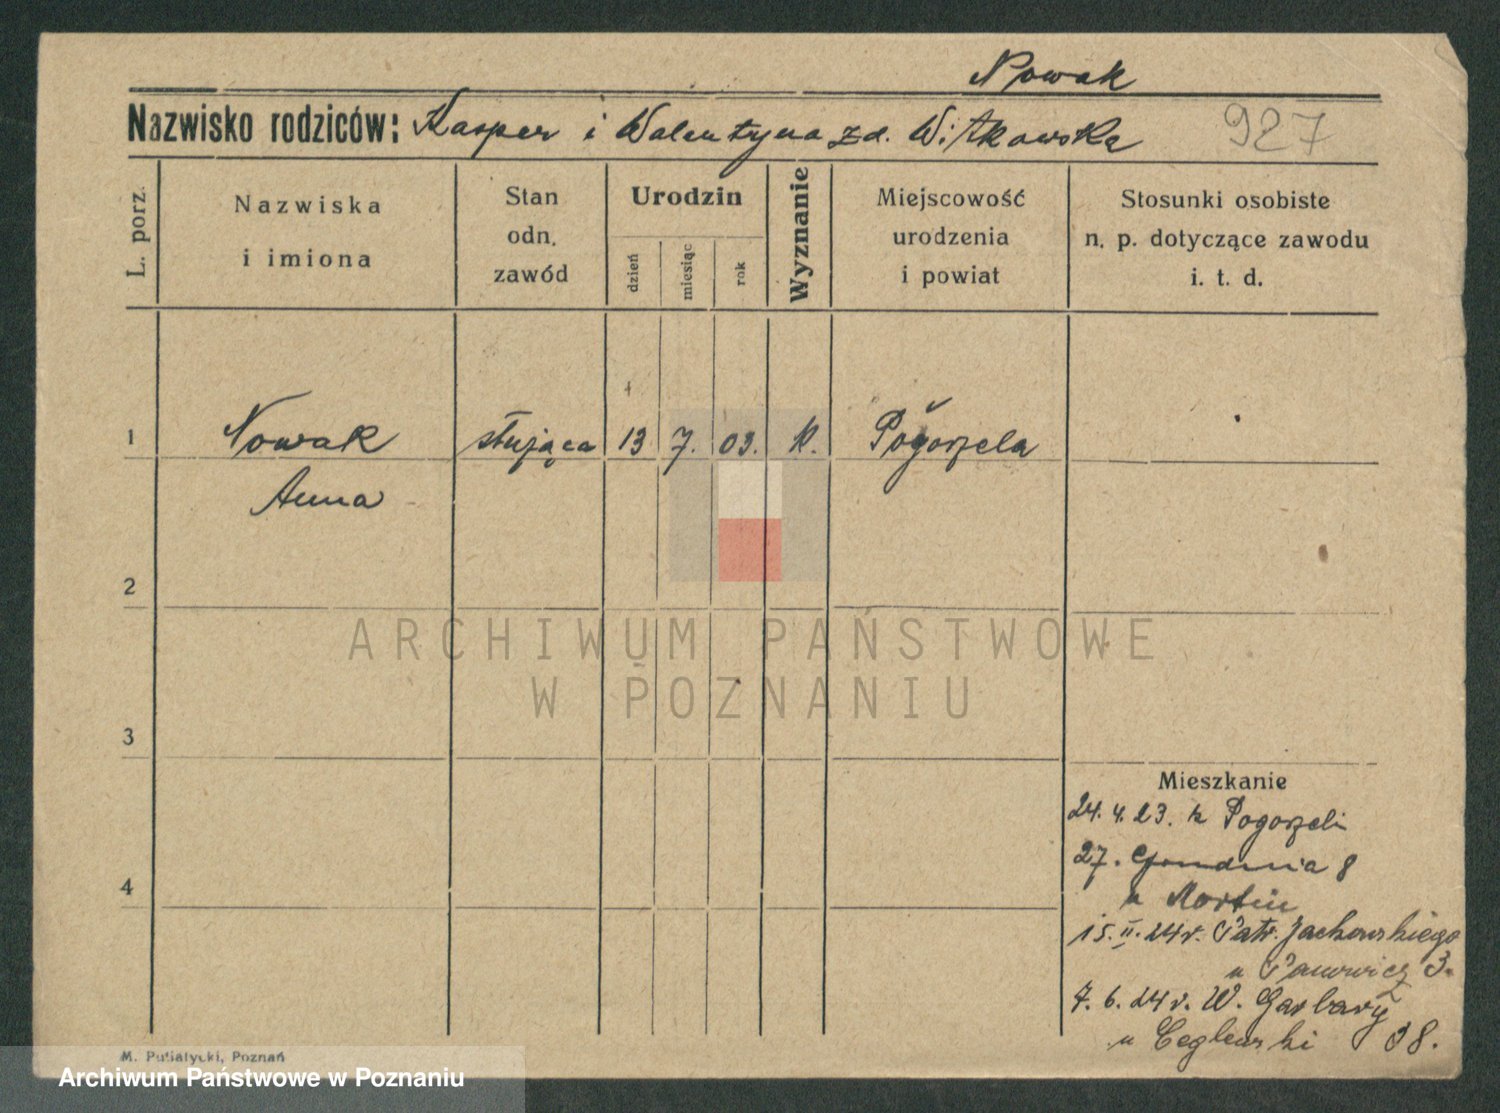 Nowak
Nazwisko rodziców: Kasper i Walentyna z d. Witkowska 927
L. porz.
Nazwiska
i imiona
Stan
odn.
zawód
Urodzin
dzień
miesiąc
rok
Wyznanie
Miejscowość
urodzenia
i powiat
Stosunki osobiste
n. p. dotyczące zawodu
i. t. d.
1 Nowak służąca 13 7. 03. k. Pogorzela
Anna
2
3
4
Mieszkanie
24. 4. 23. z Pogorzeli
27. Grudnia 8
u
15. II. 24 r. Patr. Jackowskiego
u 3.
7. 6. 24 r. W. Garbary
u Ceglewski 38.
M. Putiatycki, Poznań
ARCHIWUM PAŃSTWOWE
W POZNANIU
Archiwum Państwowe w Poznaniu